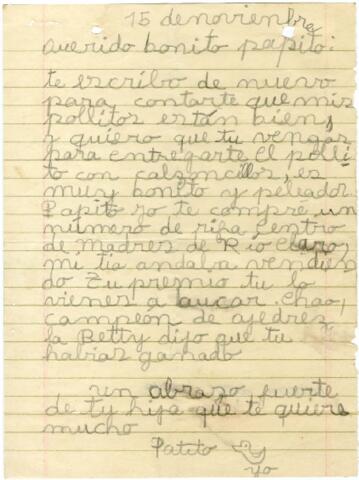 15 de noviembre
Querido bonito papito:
te escribo de nuevo
para contarte que mis
pollitos están bien,
y quiero que tu vengas
para entregarte el polli
to con calzoncillos, es
muy bonito y peleador.
Papito yo te compré un
número de rifa, centro
de Madres de Río Claro,
mi tía andaba vendien
do Tu premio tu lo
vienes a buscar. Chao,
campeón de ajedrez,
la Betty dijo que tu
habias ganado
un abrazo fuerte
de ty hija que te quiere
mucho
Patito
yo